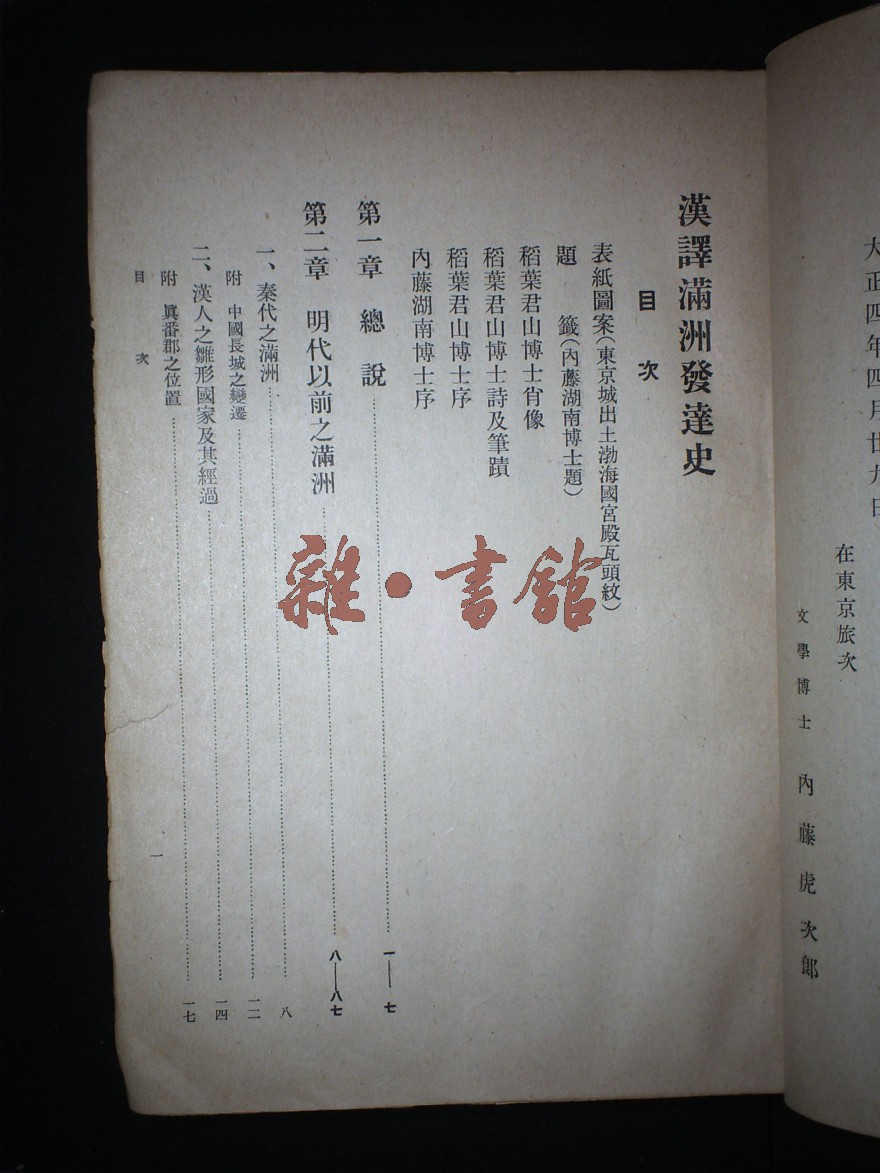 大正四年四月廿九日
在東京旅次
文學博士 內藤虎次郎
漢譯滿洲發達史
目次
表紙圖案(東京城出土渤海國宮殿瓦頭紋)
題 籤(內藤湖南博士題)
稻葉君山博士肖像
稻葉君山博士詩及筆蹟
稻葉君山博士序
內藤湖南博士序
第一章 總說 一——七
第二章 明代以前之滿洲 八——八七
一、秦代之滿洲 八
附 中國長城之變遷 一二
二、漢人之雛形國家及其經過 一四
附 眞番郡之位置 一七
目次
一
雜·書館